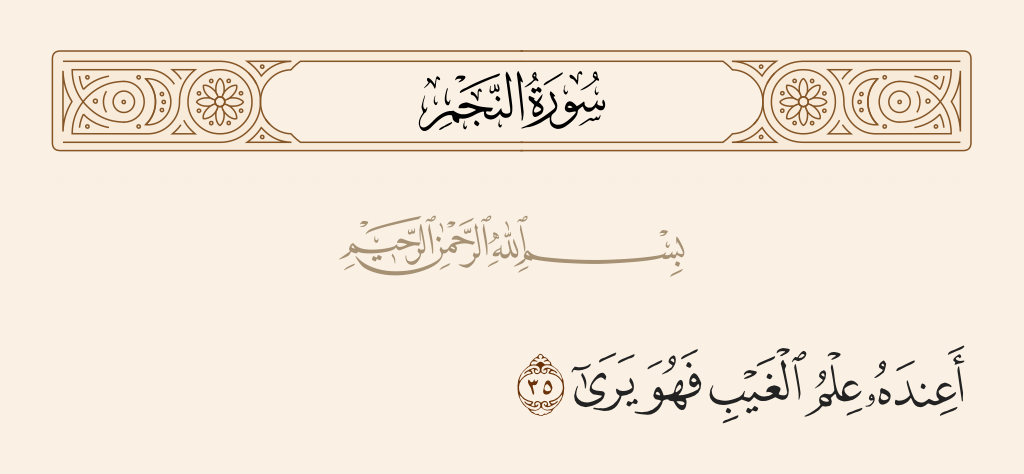 سُورَةُ النَّجْمِ
بِسْمِ ٱللَّهِ ٱلرَّحْمَٰنِ ٱلرَّحِيمِ
أَعِندَهُۥ عِلْمُ ٱلْغَيْبِ فَهُوَ يَرَىٰٓ ٣٥